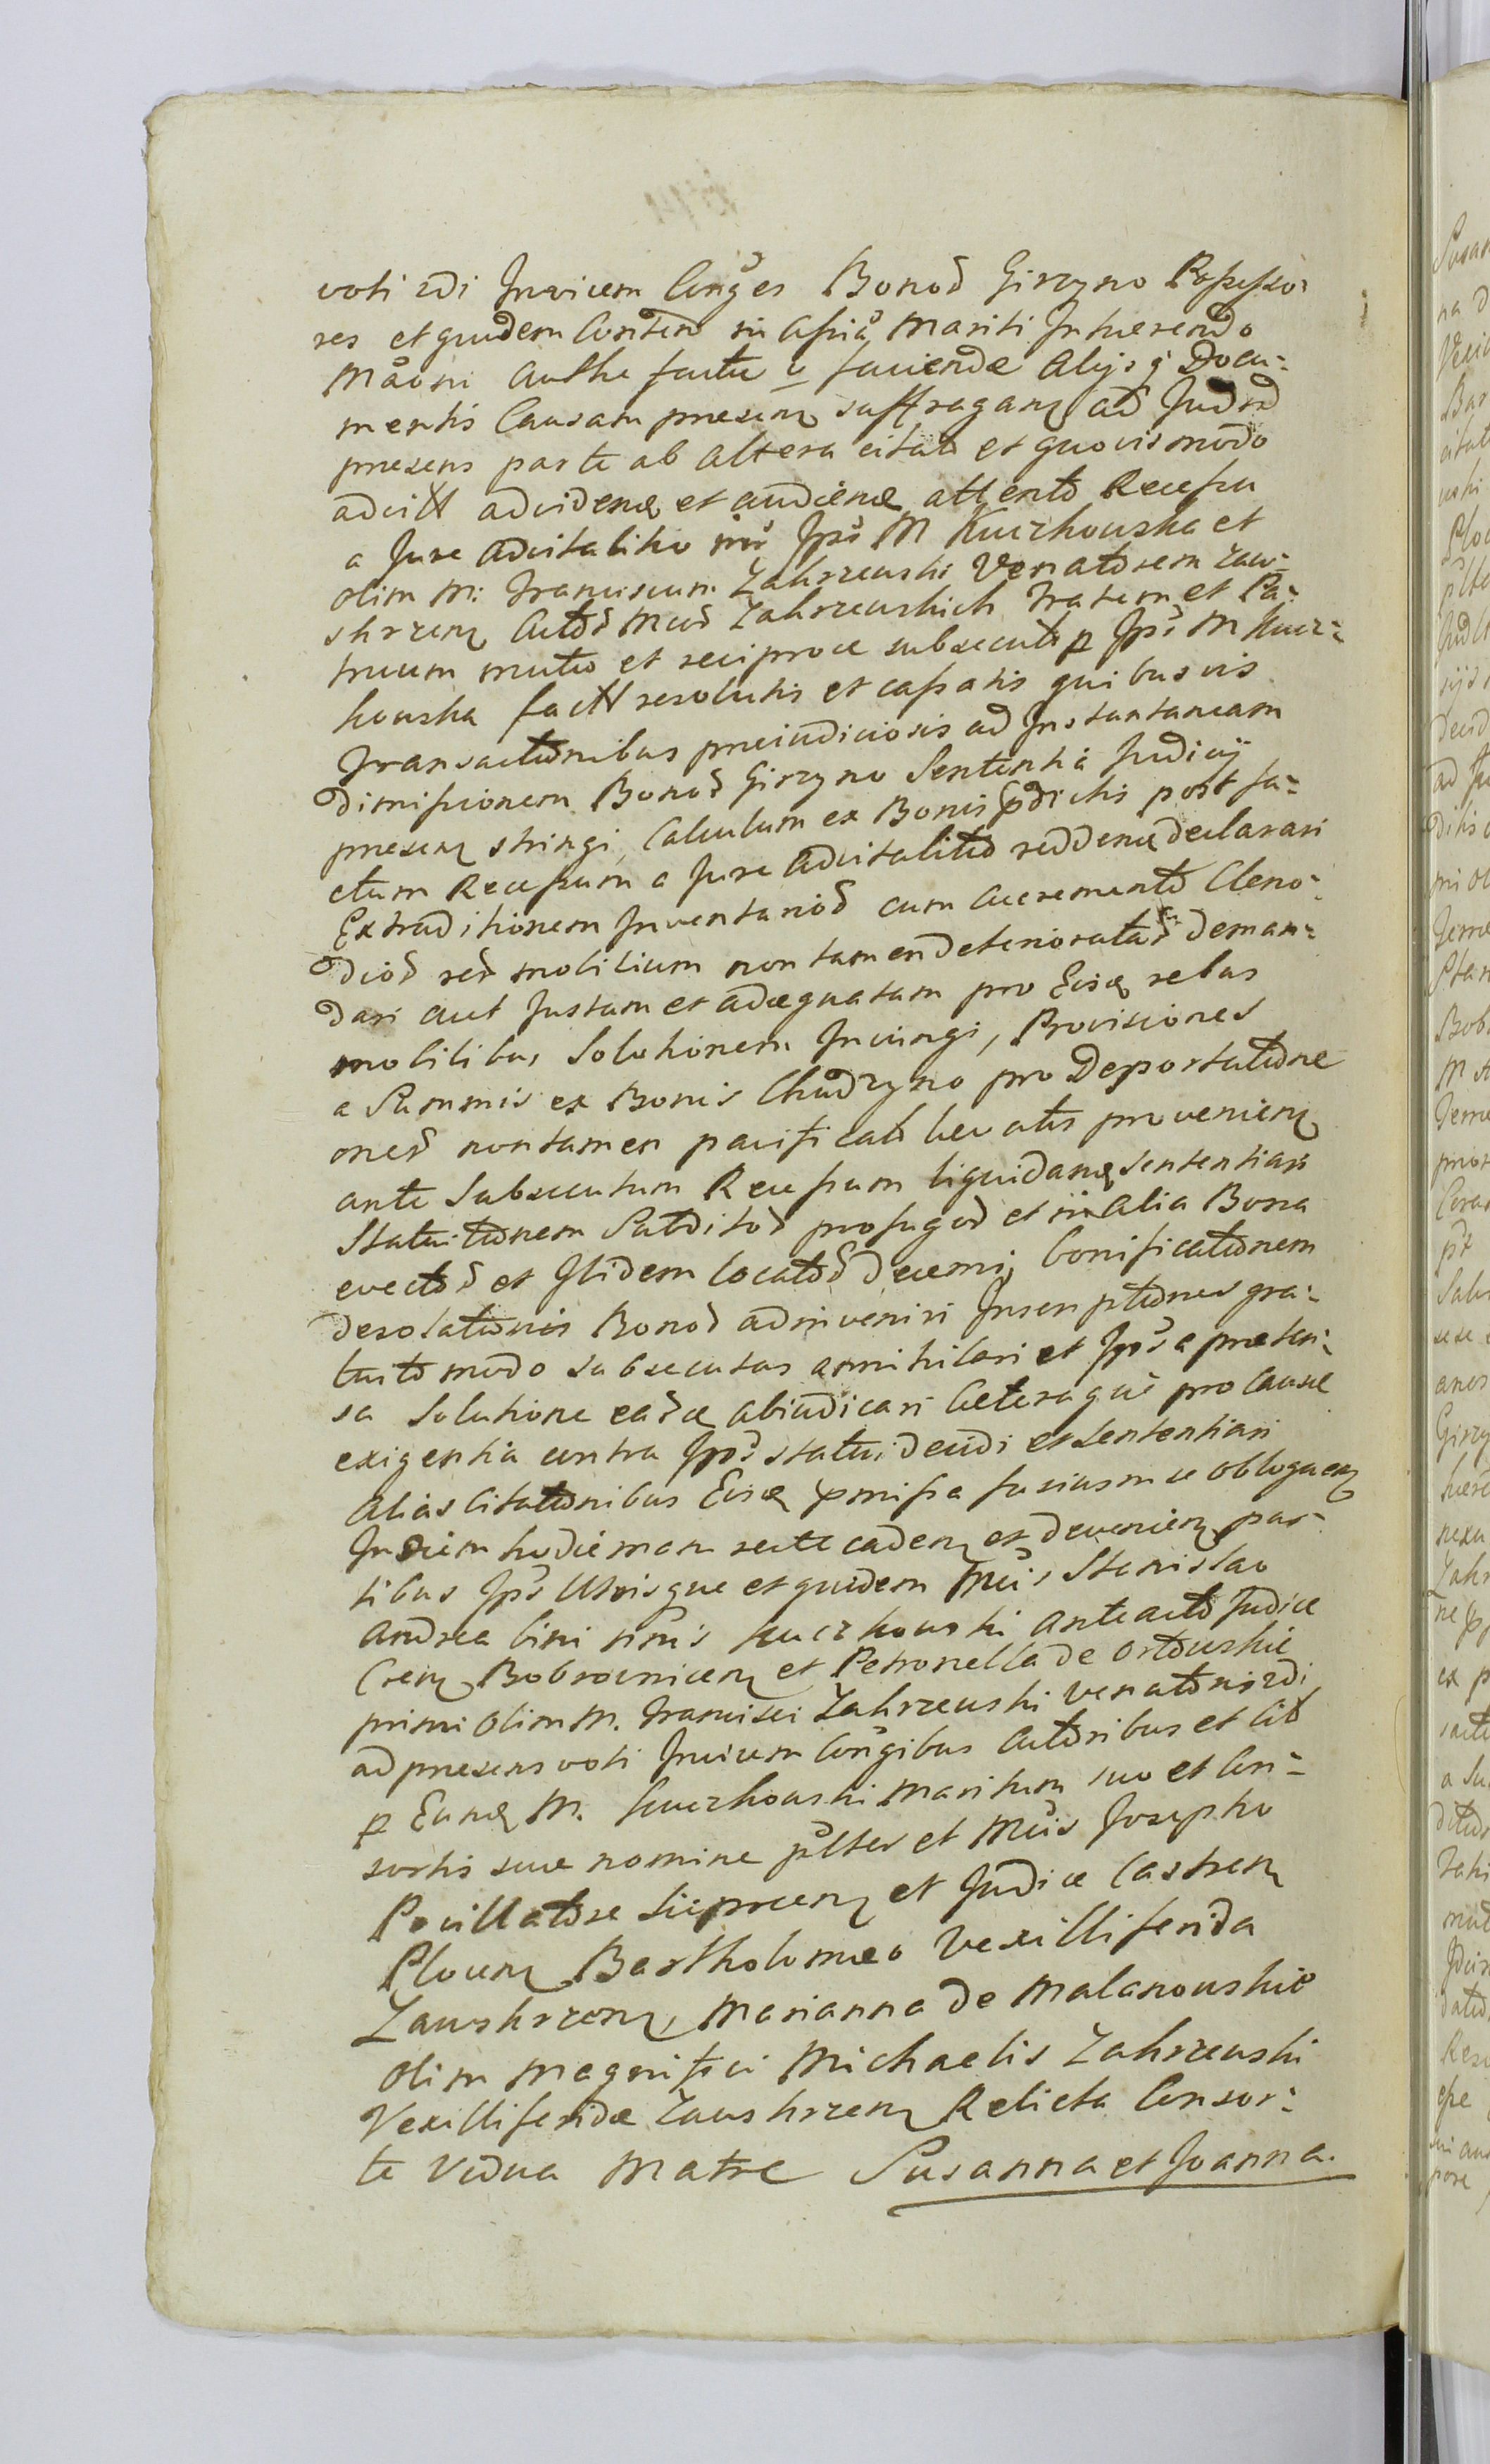 voti 2di Invicem Conges Bonod Girzyno Possesso-
res et quidem Consten in Assia Mariti Inhaerendo
Maoni Authe factae v faciendae Alijs q Docu-
mentis Causam praesen suffragan ad Judm
praesens parte ab altera citato et quovismodo
adcitt advidend et audiend attento Recessu
a Jure Advitalitio inr Ips M Kuczkowska et
olim M: Franciscum Zakrzewski Venatorem Zaw-
skrzen Actod Mcod Zakrzewskich Fratrem et Pa-
truum mutuo et reciproce subsecuto p Ips M Kucz-
kowska factt resolutis et cassatis quibusvis
Transactionibus praeiudiciosis ad Instantaneam
Dimissionem Bonod Girzyno Sententia Judicij
praesen stringi, Calculum ex Bonis pdictis post fa-
ctum Recessum a Jure Advitalitio reddend declarari
Extraditionem Inventariod cum Accremento Cleno-
diod red mobilium non tamen deterioratad deman-
dari aut Justam et adaequatam pro Eisd rebus
mobilibus Solutionem Iniungi, Provisiones
a Summis ex Bonis Chudzyno pro Deportatione
oned non tamen pacificato levatis provenien
ante Subsecutum Recessum liquidand sententiari
Statuitionem Subditod profugod et in Alia Bona
evectod et Ibidem locatod decerni, bonificationem
desolationis Bonod adinveniri Inscriptiones gra-
tuito modo subsecutas annihilari et Ips a praeten-
sa Solutione eard abiudicari Caeteraque pro Causae
exigentia contra Ips statui decidi et sententiari
Alias Citationibus Eisd pmissa fusius in se obloquen
In Diem hodiernam recte caden et devenien par-
tibus Ips Utrisque et quidem Mcis Stanislao
Andrea bini nomis Kuczkowski Anteacto Judice
Cren Bobrownicen et Petronella de Orłowskie
primi olim M. Francisci Zakrzewski Venatoris 2di
ad praesens voti Invicem Congibus Actoribus et Cit
p Eund M. Kuczkowski Maritum suo et Con-
sortis suae nomine plter et Mcis Josepho
Pocillatore Sieprcen et Judice Castren
Plocen Bartholomaeo Vexilliferida
Zawskrzen, Marianna de Malanowskie
olim Magnifici Michaelis Zakrzewski
Vexilliferidae Zawskrzen Relicta Consor-
te Vidua Matre Susanna et Joanna.